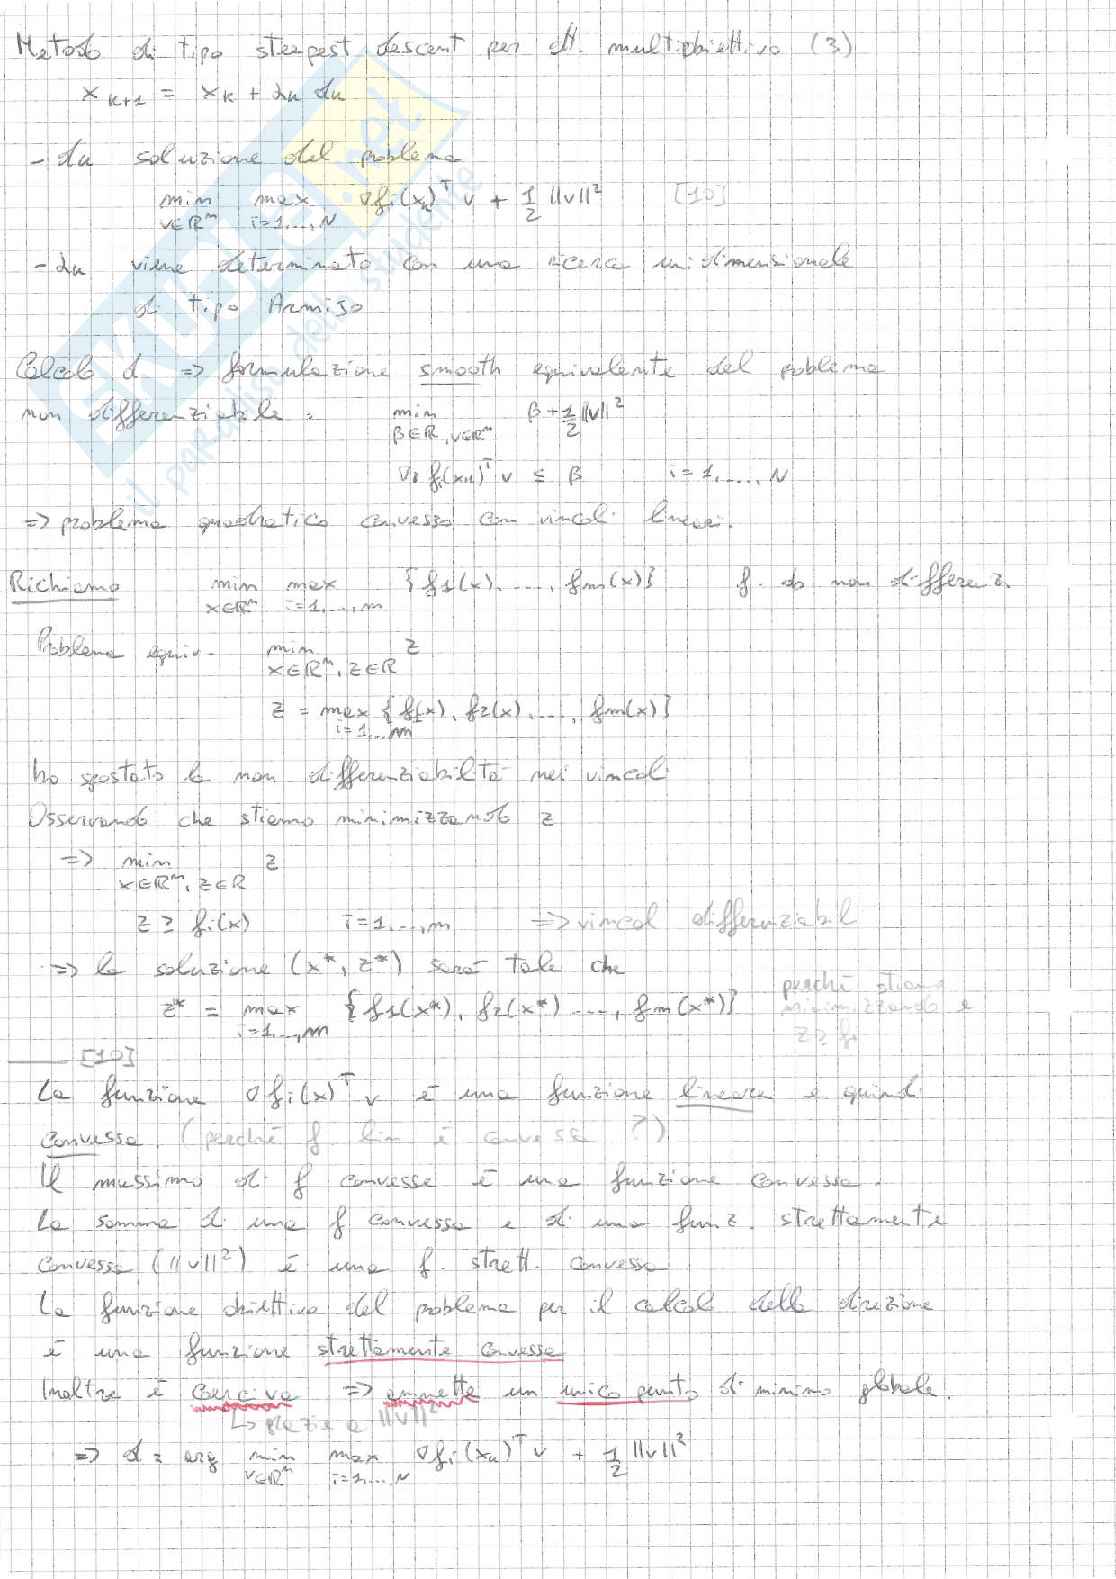 Metodo di tipo steepest descent per ott. multiobiettivo (3)
x_{k+1} = x_k + α_k d_k
- d_k soluzione del problema
min max ∇f_i(x_k)^T v + 1/2 ||v||^2 [10]
v∈R^n i=1,...,N
- α_k viene determinato con una ricerca unidimensionale
di tipo Armijo
Calcolo d => formulazione smooth equivalente del problema
non differenziabile: min β + 1/2 ||v||^2
β∈R, v∈R^n
∇f_i(x_k)^T v ≤ β i=1,...,N
=> problema quadratico convesso con vincoli lineari.
Richiamo min max {f1(x),...,fm(x)} f. ob non differenz.
x∈R^n i=1,...,m
Problema equiv. min z
x∈R^n, z∈R
z = max {f1(x), f2(x),...,fm(x)}
i=1,...m
ho spostato la non differenziabilità nei vincoli
Osservando che stiamo minimizzando z
=> min z
x∈R^n, z∈R
z ≥ f_i(x) i=1,...,m => vincoli differenziabili
=> la soluzione (x*, z*) sarà tale che
z* = max {f1(x*), f2(x*)...., fm(x*)} perché stiamo minimizzando e z≥fi
i=1...,m
[10]
La funzione ∇f_i(x)^T v è una funzione lineare e quindi
convessa. (perché f lin è convessa ?)
Il massimo di f convesse è una funzione convessa.
La somma di una f convessa e di una funz. strettamente
convessa (||v||^2) è una f. strett. convessa
La funzione obiettivo del problema per il calcolo della direzione
è una funzione strettamente convessa
Inoltre è coerciva => ammette un unico punto di minimo globale.
↳ grazie a ||v||^2
=> d = arg min max ∇f_i(x_k)^T v + 1/2 ||v||^2
v∈R^n i=1,...N
SKUOLA.net
il paradiso dello studente